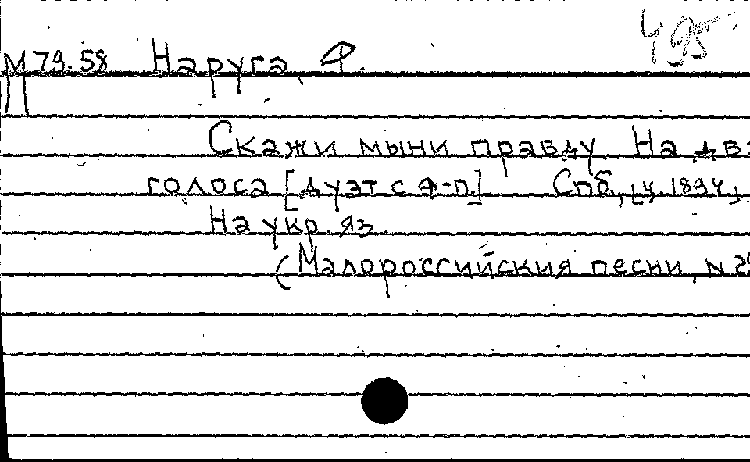 495
М 79.58 Наруга, Ф.
Скажи мыни правду. На два
голоса [дуэт с ф-п.] Спб, ц.ч. 1894.
На укр. яз.
(Малороссийския песни, №